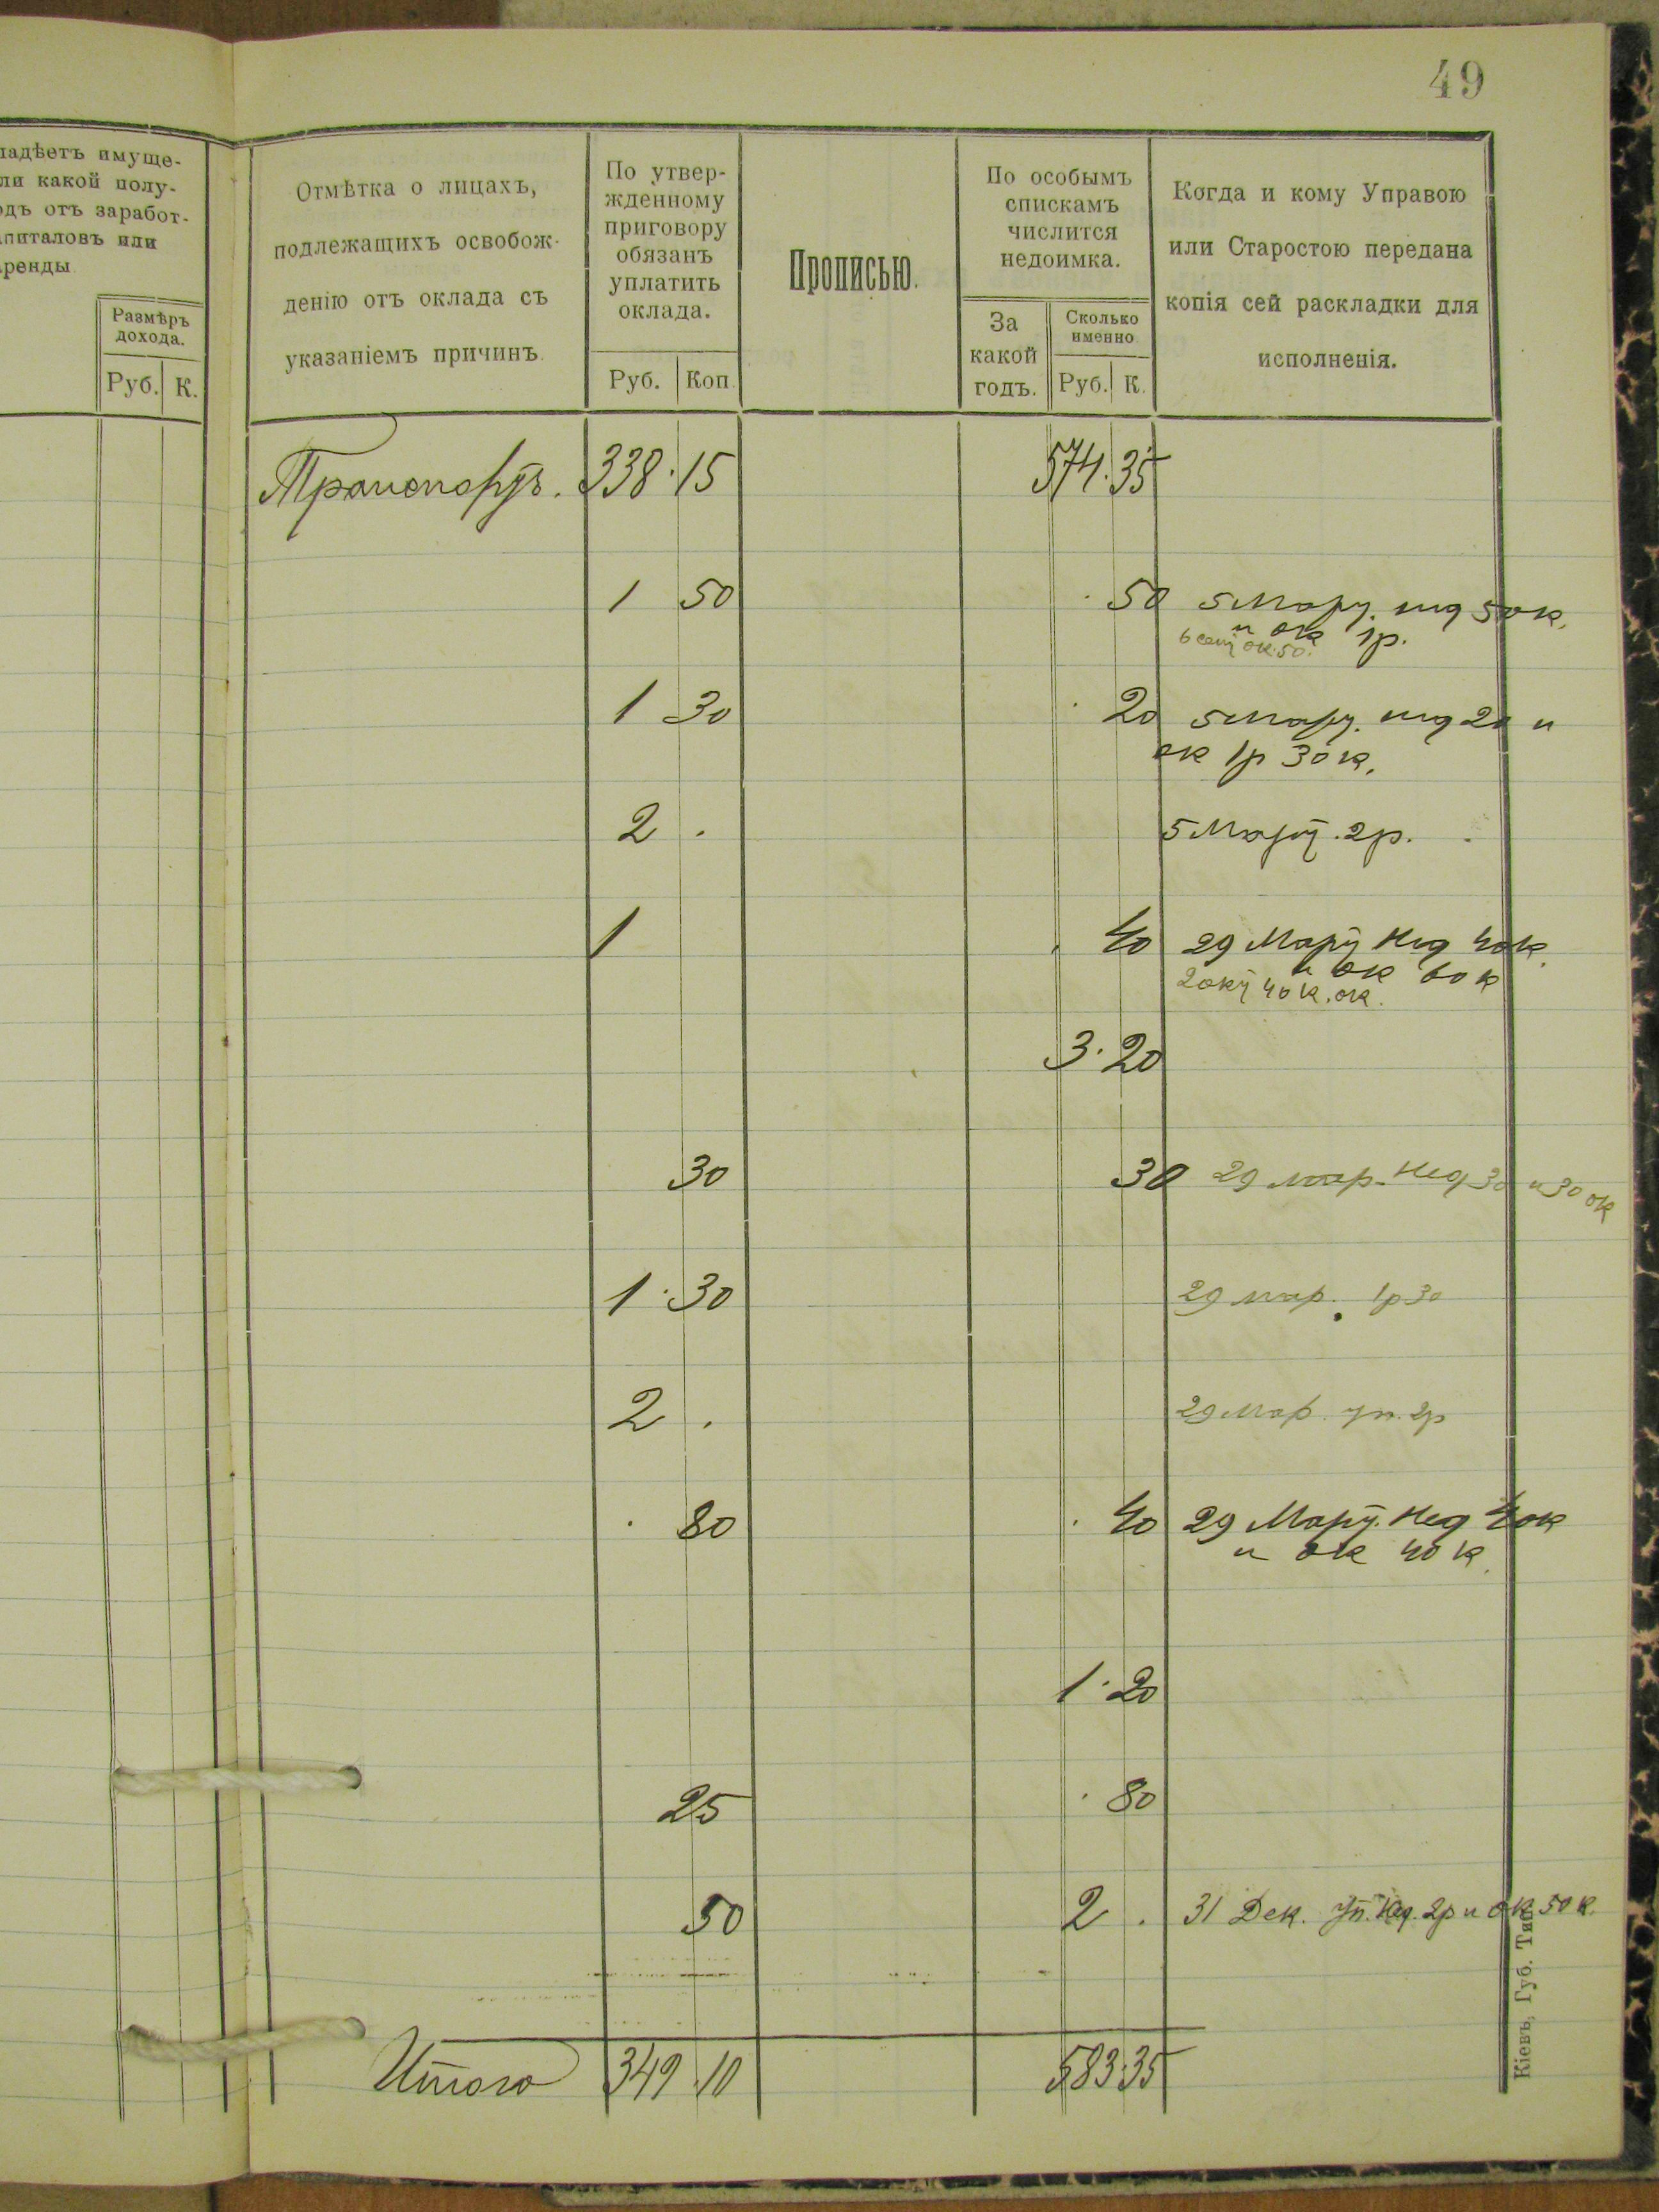 49
ладѣетъ имуще-
ли какой полу-
одъ отъ заработ-
апиталовъ или
ренды
Размѣръ
дохода.
Руб. К.
Отмѣтка о лицахъ,
подлежащихъ освобож-
денію отъ оклада съ
указаніемъ причинъ
По утвер-
жденному
приговору
обязанъ
уплатить
оклада.
Руб. Коп.
Прописью.
По особымъ
спискамъ
числится
недоимка.
За
какой
годъ.
Сколько
именно
Руб. К.
Когда и кому Управою
или Старостою передана
копія сей раскладки для
исполненія.
Транспортъ. 338 15 574 35
1 50 50 5 Март. нед 50 к.
и ок 1р.
6 сент ок. 50.
1 30 20 5 март. нед 20 и
ок 1р 30 к.
2 . 5 Март. 2р.
1 40 29 Март нед 40к.
и ок 60 к
2 окт 40 к. ок.
3 20
30 30 29 мар. нед 30 и 30 ок
1 30 29 мар. 1р 30
2 . 29 мар. уп. 2р
80 40 29 Март. нед 40к
и ок 40 к.
1 20
25 80
50 2 . 31 Дек. уп. нед. 2р и ок 50 к.
Итого 349 10 583 35
Кіевъ, Губ. Тип.